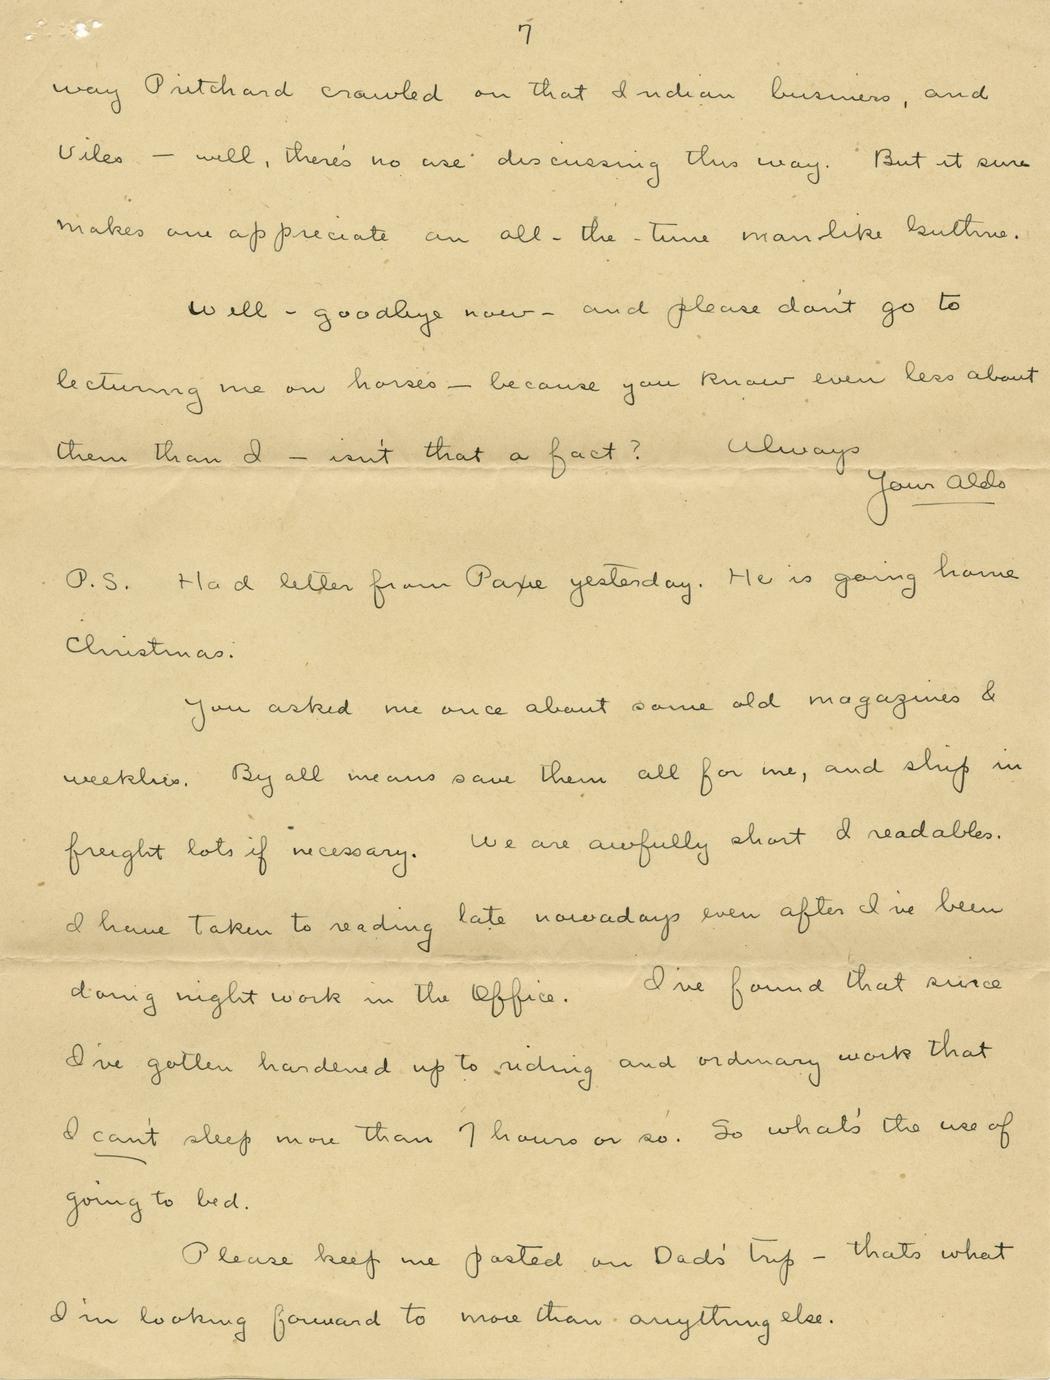 7
way Pritchard crawled on that Indian business, and
Viles — well, there's no use discussing this way. But it sure
makes one appreciate an all-the-time man like Guthrie.
Well - goodbye now - and please don't go to
lecturing me on horses — because you know even less about
them than I — isn't that a fact? Always
Your Aldo
P.S. Had letter from Paxie yesterday. He is going home
Christmas.
You asked me once about some old magazines &
weeklies. By all means save them all for me, and ship in
freight lots if necessary. We are awfully short I readables.
I have taken to reading late nowadays even after I've been
doing night work in the Office. I've found that since
I've gotten hardened up to riding and ordinary work that
I can't sleep more than 7 hours or so. So what's the use of
going to bed.
Please keep me posted on Dad's trip - thats what
I'm looking forward to more than anything else.